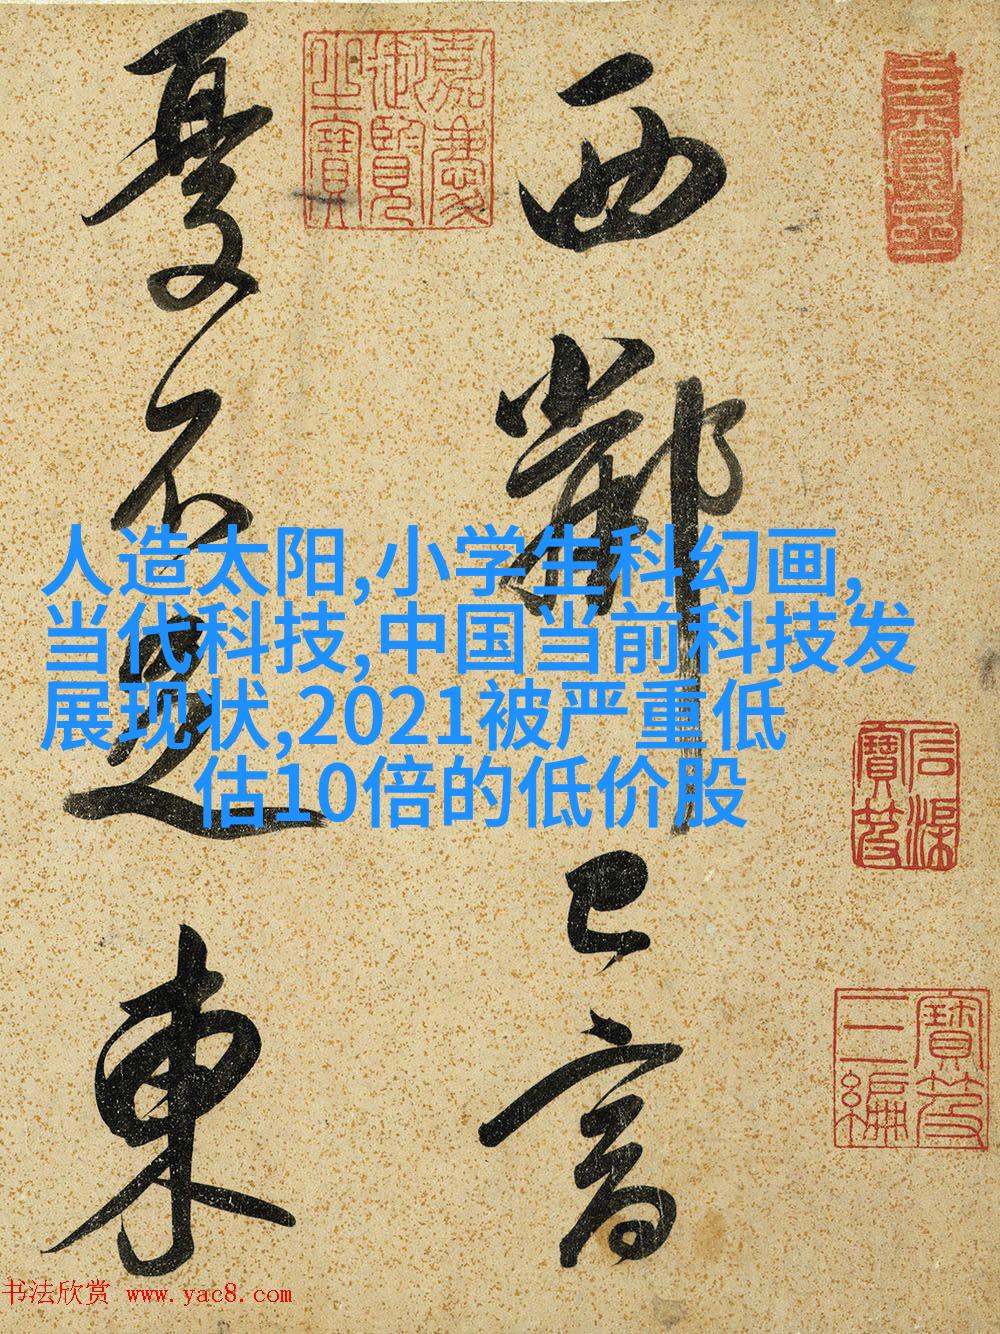 西鄰已富
憂不足東
嘉慶御覽之寶
石渠寶笈
寶笈三編
人造太阳,小学生科幻画,
当代科技,中国当前科技发
展现状,2021被严重低
估10倍的低价股
书法欣赏 www.yac8.com